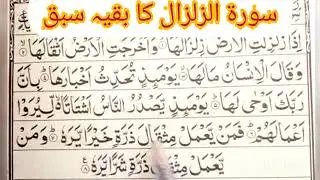 سورۃ الزلزال کا بقیہ سبق
اِذَا زُلْزِلَتِ الْاَرْضُ زِلْزَالَهَا ۙ۱ وَاَخْرَجَتِ الْاَرْضُ اَثْقَالَهَا ۙ۲
وَقَالَ الْاِنْسَانُ مَالَهَا ۚ۳ يَوْمَئِذٍ تُحَدِّثُ اَخْبَارَهَا ۙ۴ بِاَنَّ
رَبَّكَ اَوْحٰى لَهَا ؕ۵ يَوْمَئِذٍ يَّصْدُرُ النَّاسُ اَشْتَاتًا ۙ لِّيُرَوْا
اَعْمَالَهُمْ ؕ۶ فَمَنْ يَّعْمَلْ مِثْقَالَ ذَرَّةٍ خَيْرًا يَّرَهٗ ؕ۷ وَمَنْ
يَّعْمَلْ مِثْقَالَ ذَرَّةٍ شَرًّا يَّرَهٗ ۸